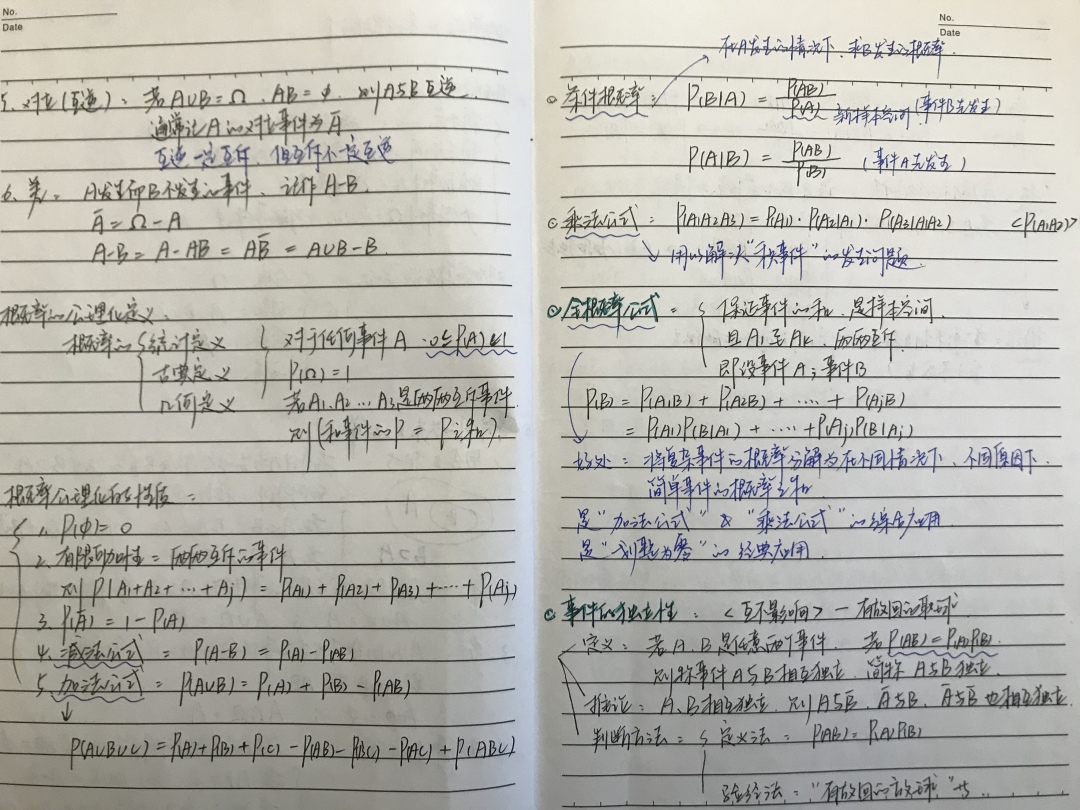 No.
Date
5. 对立(互逆): 若A∪B=Ω、AB=φ. 则A与B互逆.
通常记A的对立事件为Ā
互逆一定互斥,但互斥不一定互逆
6. 差: A发生而B不发生的事件、记作A-B.
Ā=Ω-A
A-B=A-AB=AB̄=A∪B-B.
概率的公理化定义.
概率的{统计定义
古典定义
几何定义
{对于任何事件A. 0≤P(A)≤1
P(Ω)=1
若A₁、A₂...Aj是两两互斥事件.
则(和事件的P=P之和)
概率公理化的性质:
1. P(φ)=0
2. 有限可加性=两两互斥的事件
则P(A₁+A₂+...+Aj)=P(A₁)+P(A₂)+P(A₃)+……+P(Aj)
3. P(Ā)=1-P(A)
4. 减法公式= P(A-B)=P(A)-P(AB)
5. 加法公式= P(A∪B)=P(A)+P(B)-P(AB)
P(A∪B∪C)=P(A)+P(B)+P(C)-P(AB)-P(BC)-P(AC)+P(ABC)
No.
Date
在A发生的情况下、求B发生的概率.
条件概率: P(B|A)=P(AB)/P(A) 新样本空间(事件B先发生)
P(A|B)=P(AB)/P(B) (事件A先发生)
乘法公式: P(A₁A₂A₃)=P(A₁)·P(A₂|A₁)·P(A₃|A₁A₂) <P(A₁A₂)>
用以解决“积事件”的发生问题.
全概率公式={保证事件的和、是样本空间.
且A₁至Ak、两两互斥.
即设事件A;事件B
P(B)=P(A₁B)+P(A₂B)+……+P(AjB)
=P(A₁)P(B|A₁)+……+P(Aj)P(B|Aj)
好处: 将复杂事件的概率分解为在不同情况下、不同原因下.
简单事件的概率之和.
是“加法公式”&“乘法公式”的综合应用
是“划整为零”的经典应用.
事件的独立性: <互不影响>—有放回的取球
定义: 若A、B是任意两个事件. 若P(AB)=P(A)P(B).
则称事件A与B相互独立. 简称A与B独立.
推论: A、B相互独立. 则A与B̄、Ā与B、Ā与B̄也相互独立.
判断方法={定义法= P(AB)=P(A)P(B)
经验法: “有放回的放球”